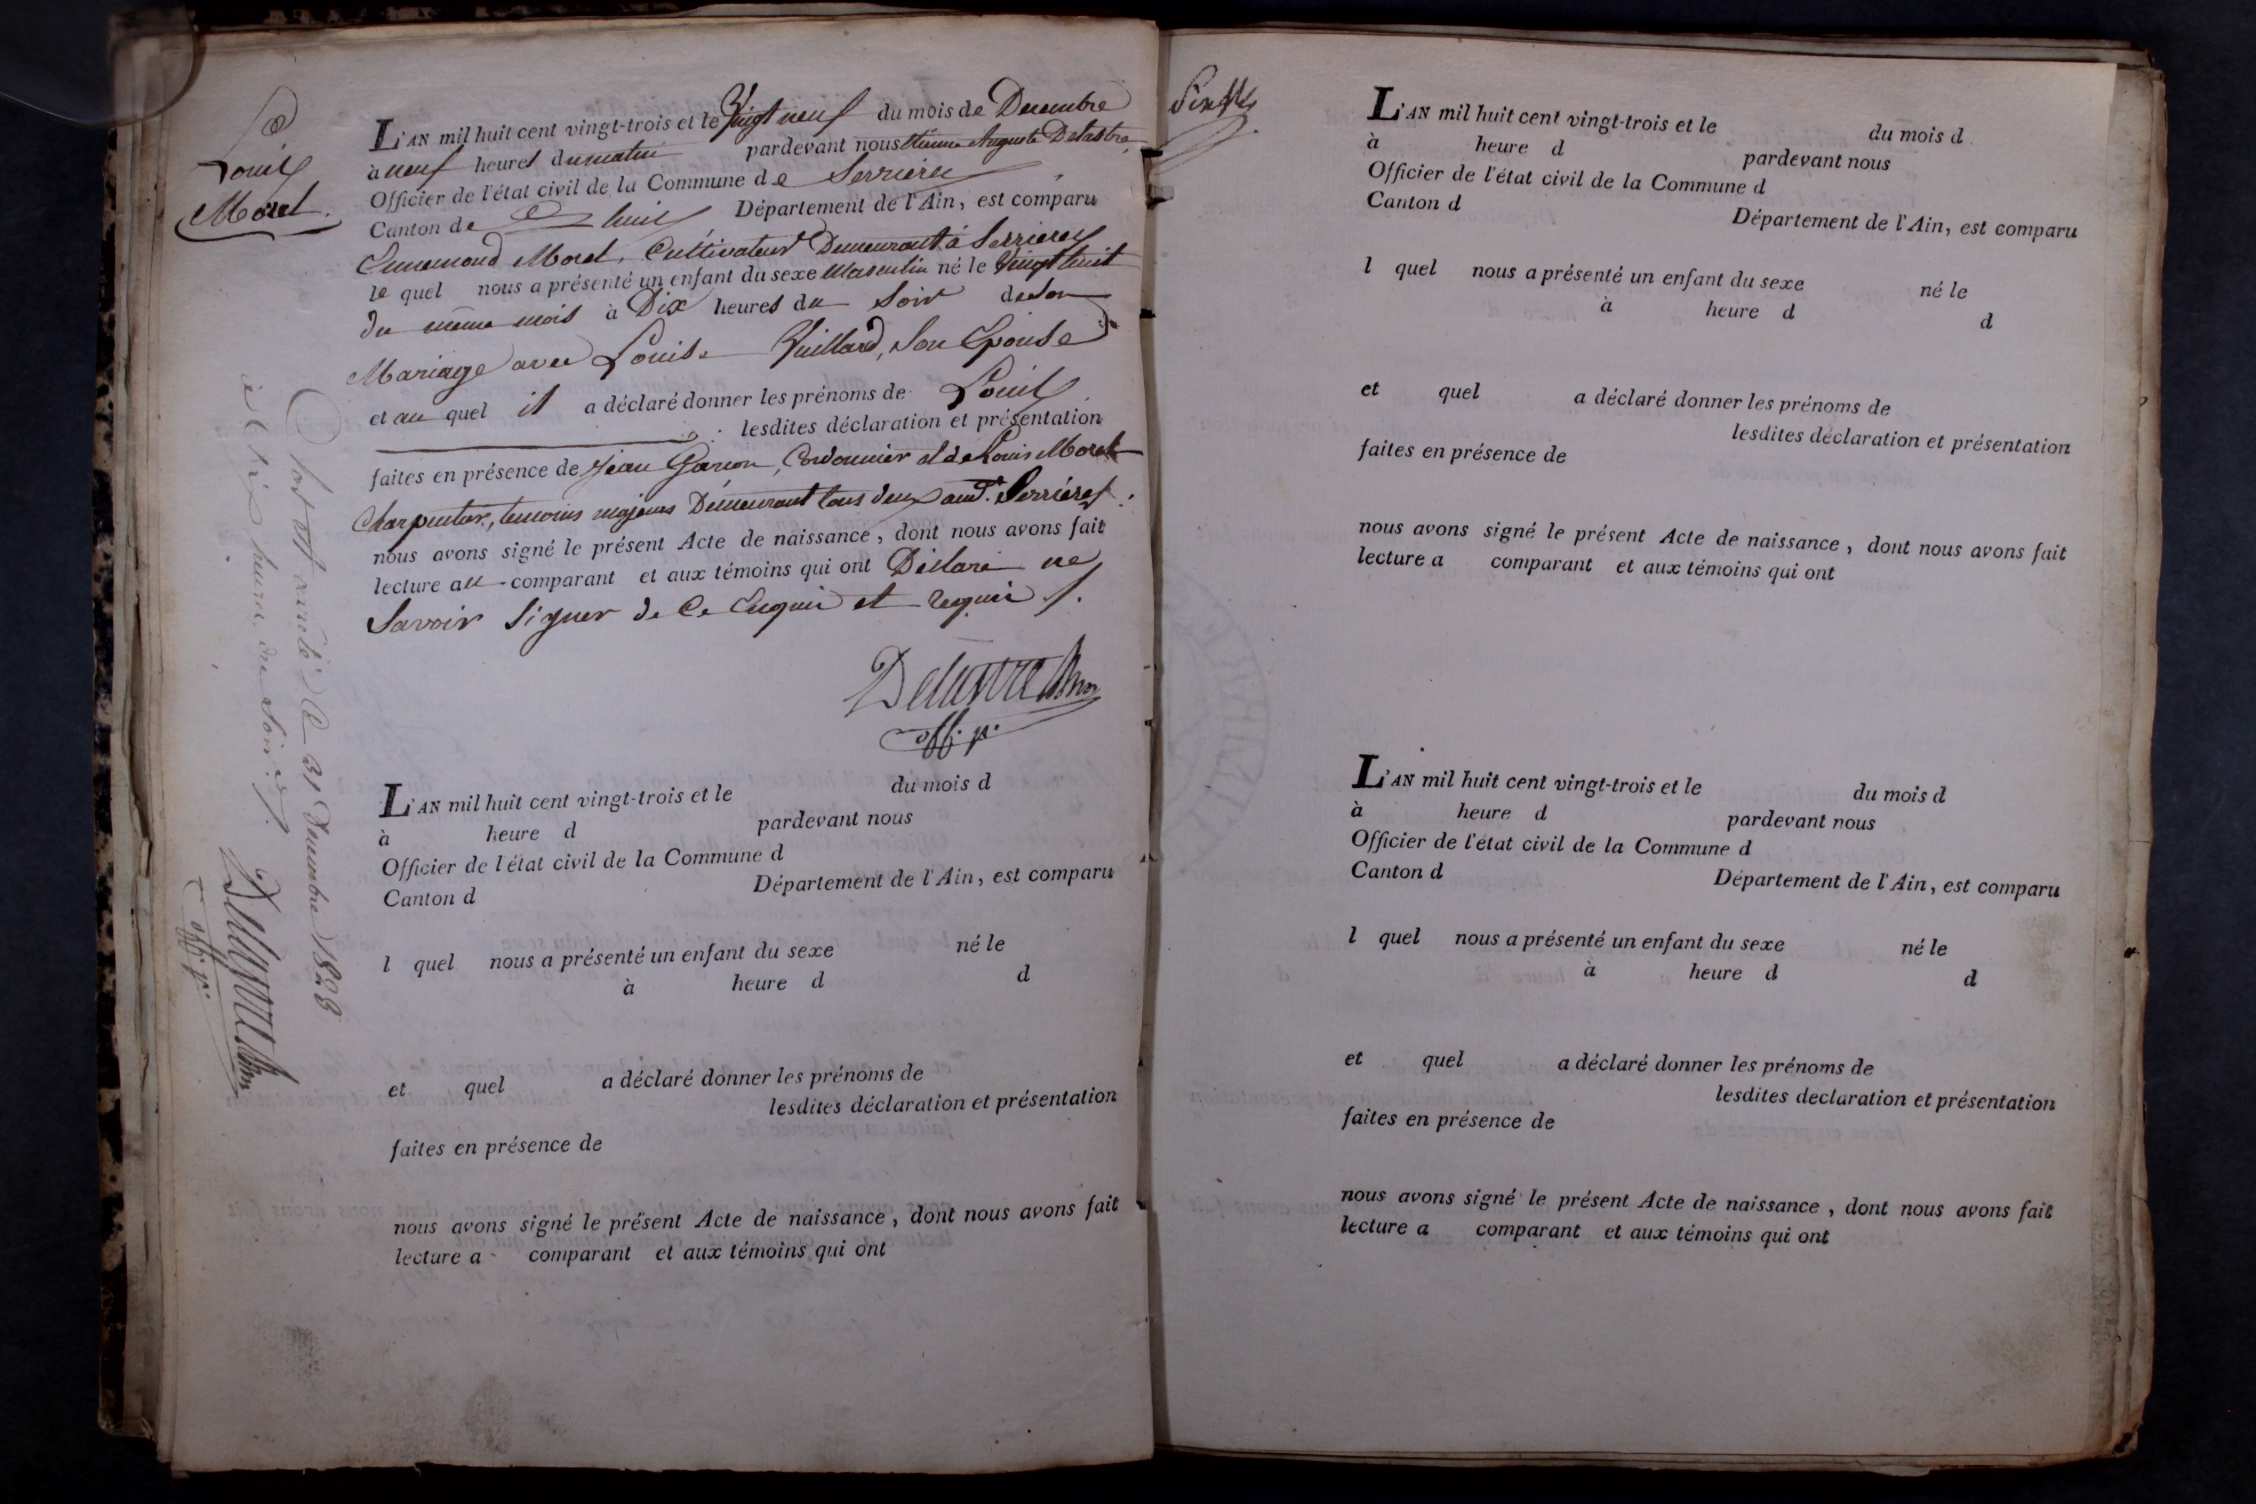 Louis
Morel.
L'AN mil huit cent vingt-trois et le Vingt neuf du mois de Decembre
à neuf heures du matin pardevant nous Etienne Auguste Delastre,
Officier de l'état civil de la Commune de Serrieres
Canton de Lhuis Département de l'Ain, est comparu
Ennemond Morel, Cultivateur Demeurant à Serrieres
le quel nous a présenté un enfant du sexe Masculin né le Vingt huit
du même mois à Dix heures du Soir de son
Mariage avec Louise Vuillard, Son Epouse
et au quel il a déclaré donner les prénoms de Louis
lesdites déclaration et présentation
faites en présence de Jean Garion, Cordonnier et de Louis Morel
Charpentier, temoins majeurs Demeurant tous deux aud.t Serrieres.
nous avons signé le présent Acte de naissance, dont nous avons fait
lecture au comparant et aux témoins qui ont Déclaré ne
Savoir Signer de Ce Enquis et requis.
off. p.
L'AN mil huit cent vingt-trois et le du mois d
à heure d pardevant nous
Officier de l'état civil de la Commune d
Canton d Département de l'Ain, est comparu
l quel nous a présenté un enfant du sexe né le
à heure d d
et quel a déclaré donner les prénoms de
lesdites déclaration et présentation
faites en présence de
nous avons signé le présent Acte de naissance, dont nous avons fait
lecture a comparant et aux témoins qui ont
arrêté Le 31 Decembre 1823
à Six heures du Soir
off. p.
L'AN mil huit cent vingt-trois et le du mois d
à heure d pardevant nous
Officier de l'état civil de la Commune d
Canton d Département de l'Ain, est comparu
l quel nous a présenté un enfant du sexe né le
à heure d d
et quel a déclaré donner les prénoms de
lesdites déclaration et présentation
faites en présence de
nous avons signé le présent Acte de naissance, dont nous avons fait
lecture a comparant et aux témoins qui ont
L'AN mil huit cent vingt-trois et le du mois d
à heure d pardevant nous
Officier de l'état civil de la Commune d
Canton d Département de l'Ain, est comparu
l quel nous a présenté un enfant du sexe né le
à heure d d
et quel a déclaré donner les prénoms de
lesdites declaration et présentation
faites en présence de
nous avons signé le présent Acte de naissance, dont nous avons fait
lecture a comparant et aux témoins qui ont